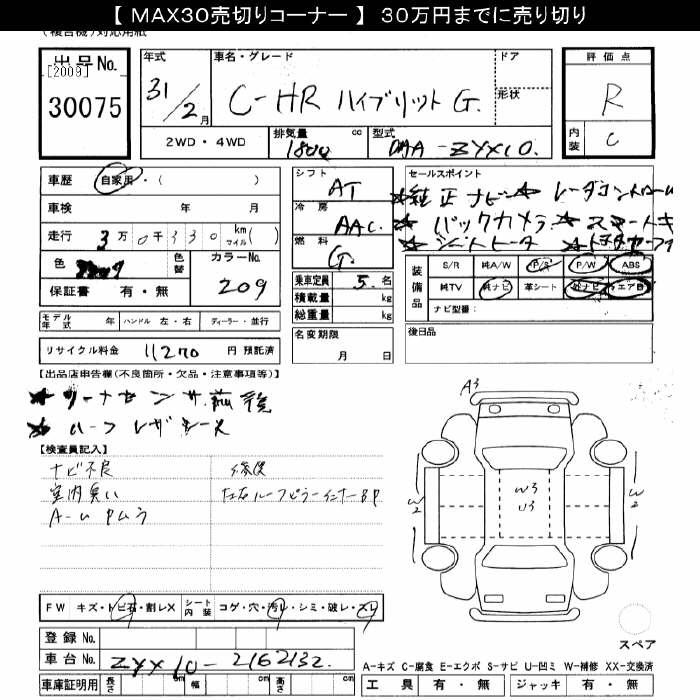 【 MAX30売切りコーナー 】 30万円までに売り切り
出品No.
[2009]
30075
年式
31/2月
車名・グレード
C-HR ハイブリット G.
ドア
形状
評価点
R
内装 C
2WD・4WD
排気量 1800 cc
型式 DAA-ZYX10.
車歴 自家用・( )
車検 年 月
走行 3万0千330 km マイル( )
色
色替
カラーNo. 209
保証書 有・無
シフト AT
冷房 AAC.
燃料 G.
乗車定員 5. 名
積載量 kg
総重量 kg
セールスポイント
★純正ナビ★ レーダコントロール
★バックカメラ★ スマートキ
★シートヒータ
装備品
S/R 純A/W P/S P/W ABS
純TV 純ナビ 革シート 外ナビ エアB
ナビ型番:
モデル年式 年 ハンドル 左・右 ディーラー・並行
名変期限
月 日
後日品
リサイクル料金 11270 円 預託済
【出品店申告欄(不良箇所・欠品・注意事項等)】
★ ソーナセンサ.前後
★ ハーフレザシース
【検査員記入】
ナビ不良 修復
室内臭い 左右ルーフピラーインナーBP
A-U Pムラ
A3
W3
U3
W2
W2
FW キズ・トビ石・割レX
シート内装 コゲ・穴・汚レ・シミ・破レ・スレ
登録 No.
車台 No. ZYX10-2162132.
車庫証明用 長さ cm 幅 cm 高さ cm
スペア
A-キズ C-腐食 E-エクボ S-サビ U-凹ミ W-補修 XX-交換済
工具 有・無 ジャッキ 有・無